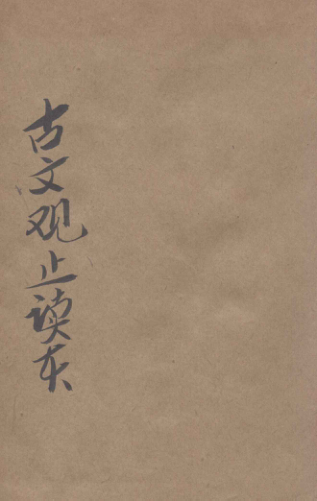 古文观止读本